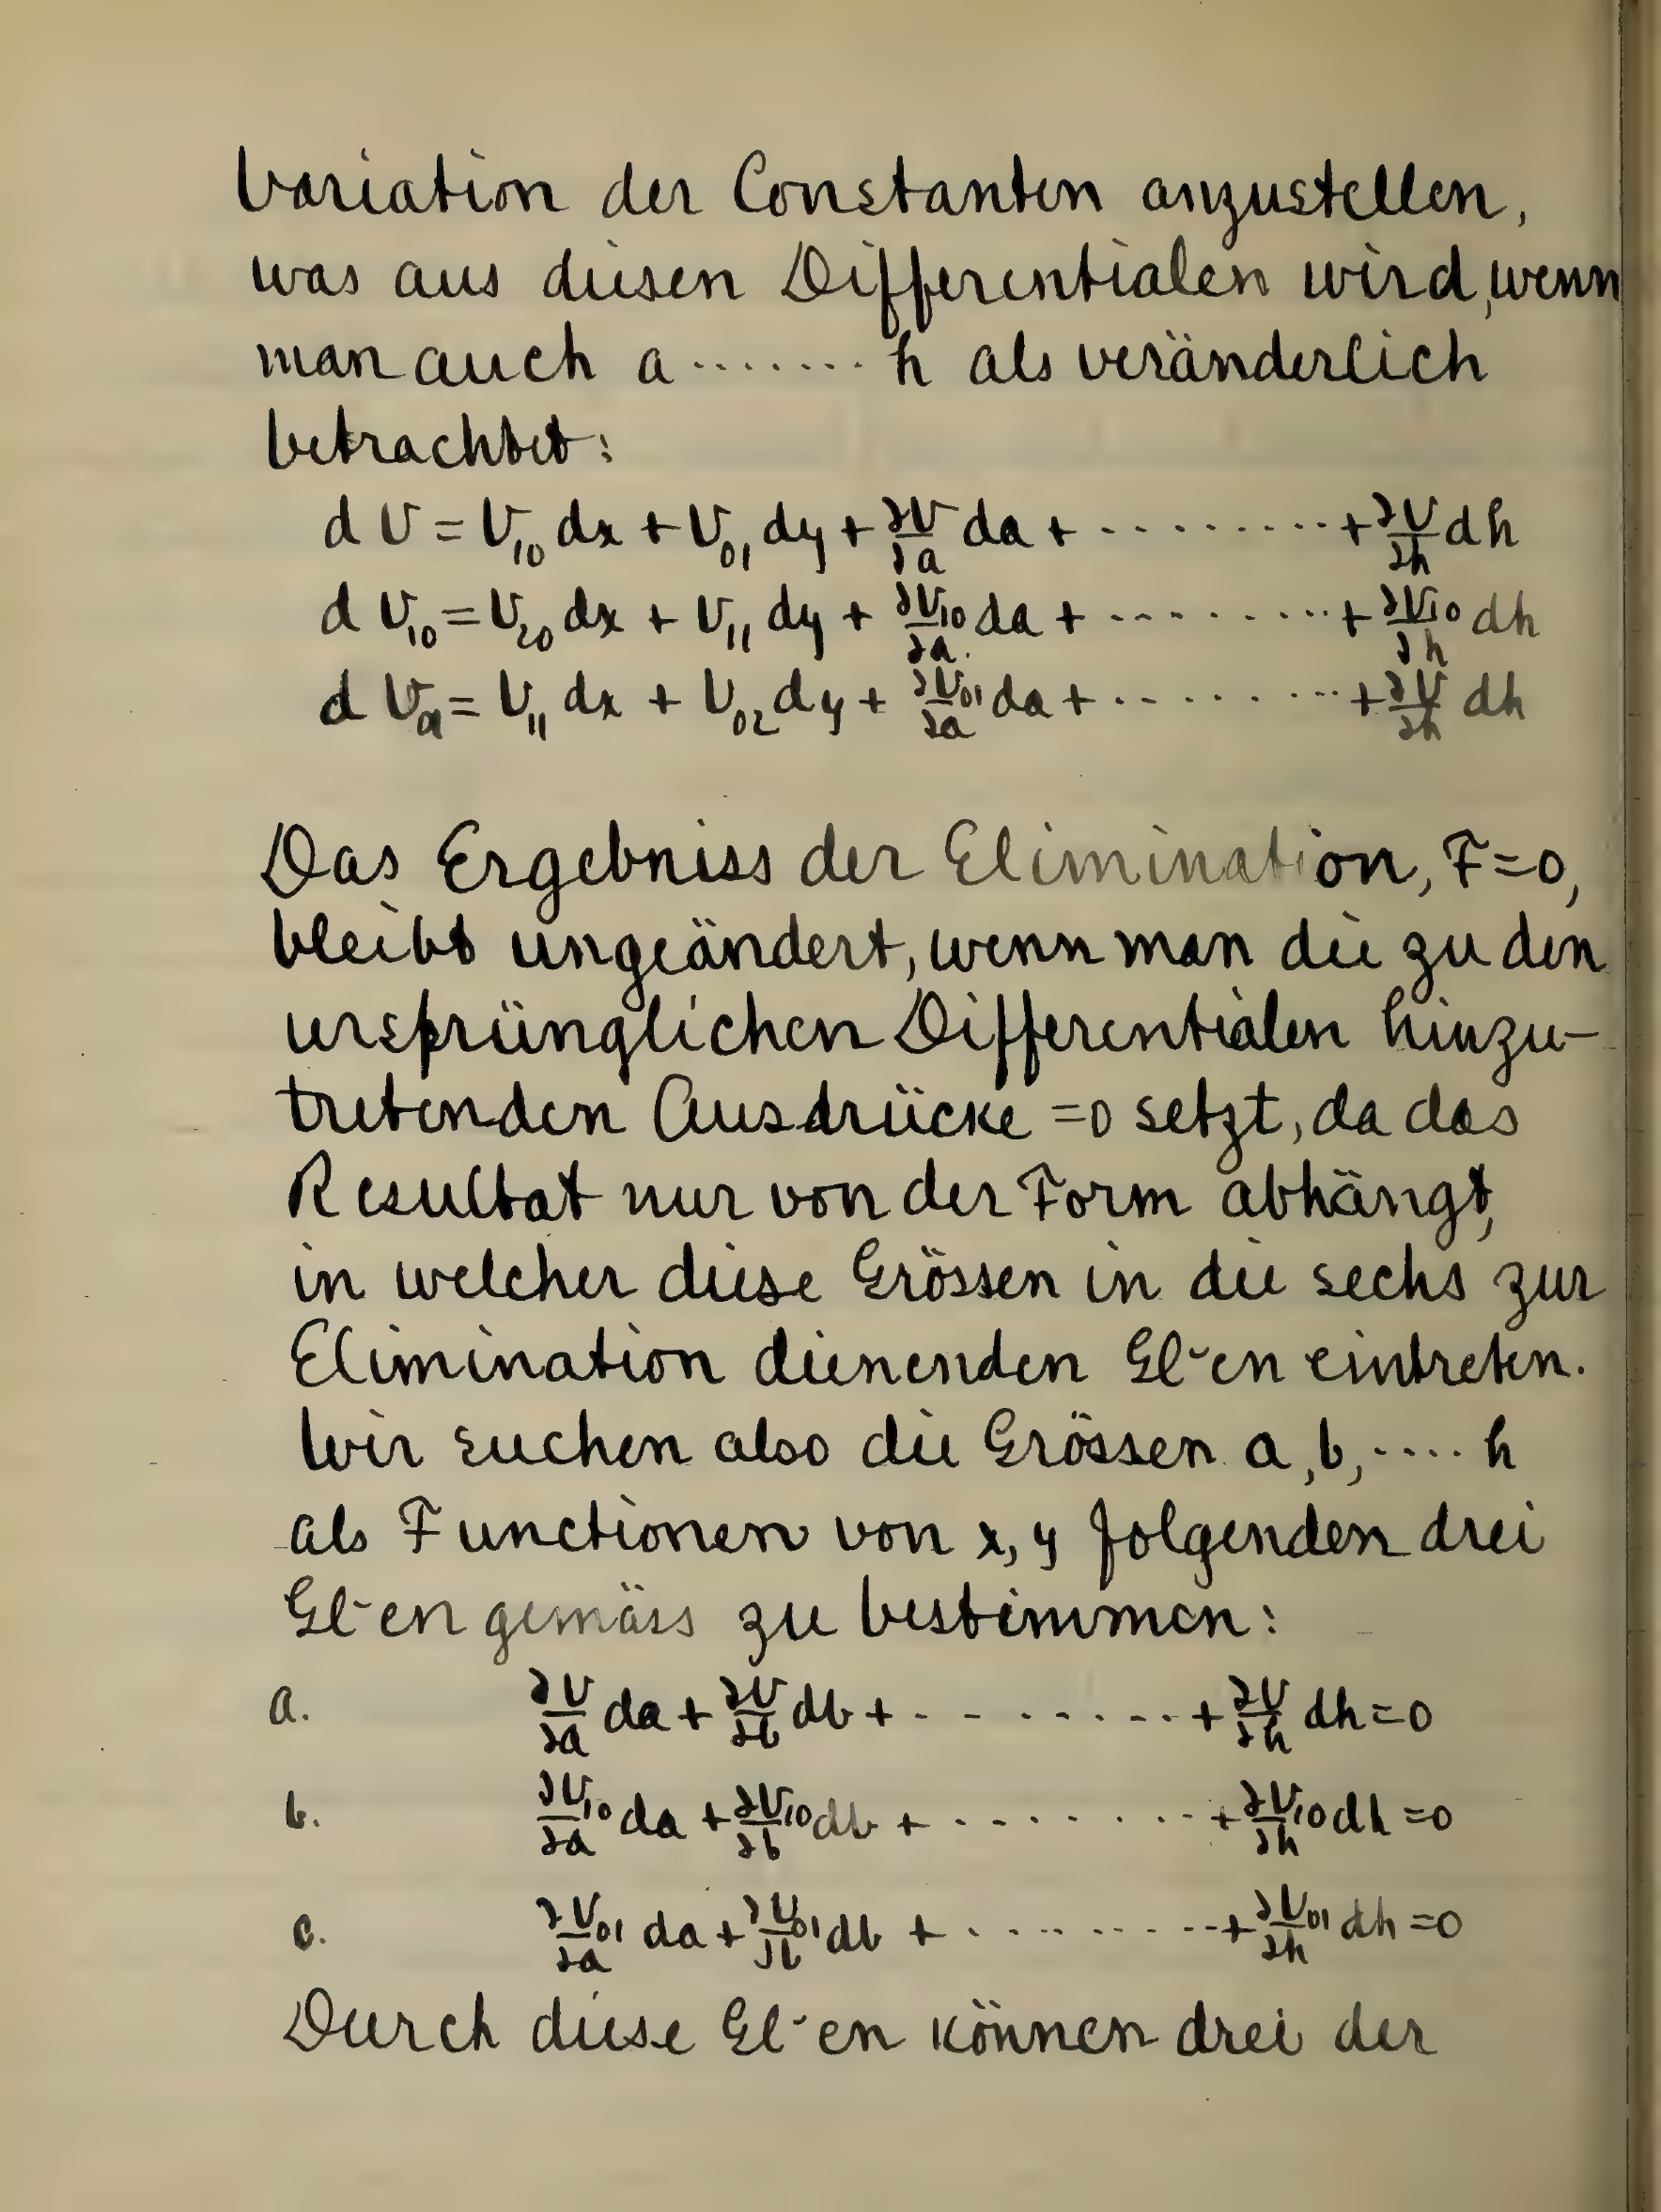 Variation der Constanten anzustellen,
was aus diesen Differentialen wird, wenn
man auch a ........ h als veränderlich
betrachtet:
d V = V₁₀ dx + V₀₁ dy + ∂V/∂a da + ......... + ∂V/∂h dh
d V₁₀ = V₂₀ dx + V₁₁ dy + ∂V₁₀/∂a da + ......... + ∂V₁₀/∂h dh
d V₀₁ = V₁₁ dx + V₀₂ dy + ∂V₀₁/∂a da + ......... + ∂V/∂h dh
Das Ergebniss der Elimination, F=0,
bleibt ungeändert, wenn man die zu den
ursprünglichen Differentialen hinzu-
tretenden Ausdrücke =0 setzt, da das
Resultat nur von der Form abhängt,
in welcher diese Grössen in die sechs zur
Elimination dienenden Gl-en eintreten.
Wir suchen also die Grössen a, b, .... h
als Functionen von x, y folgenden drei
Gl-en gemäss zu bestimmen:
a. ∂V/∂a da + ∂V/∂b db + ......... + ∂V/∂h dh = 0
b. ∂V₁₀/∂a da + ∂V₁₀/∂b db + ......... + ∂V₁₀/∂h dh = 0
c. ∂V₀₁/∂a da + ∂V₀₁/∂b db + ......... + ∂V₀₁/∂h dh = 0
Durch diese Gl-en können drei der